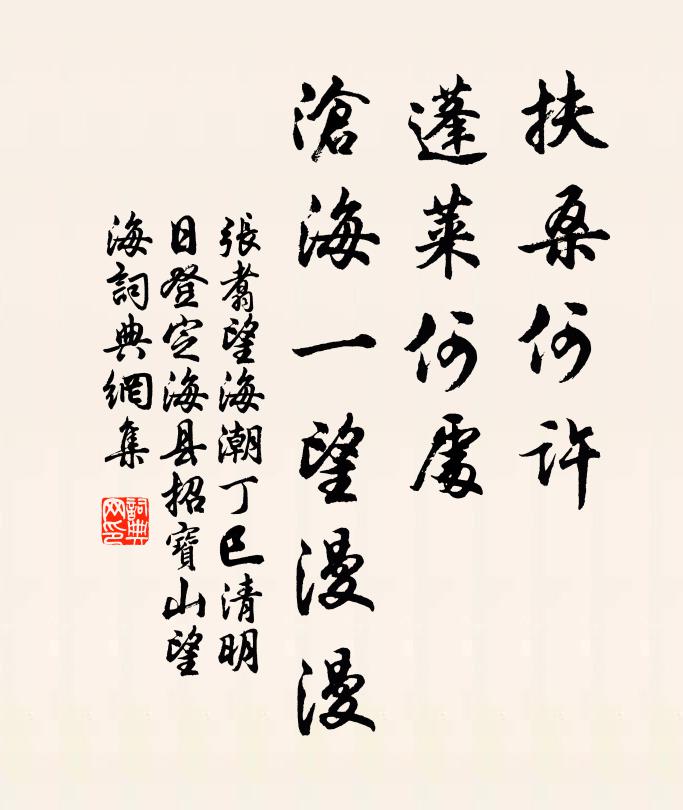 扶桑何許
蓬萊何處
滄海一望漫漫
張翥望海潮丁巳清明
日登定海县招寶山望
海詞典網集
詞典
网印